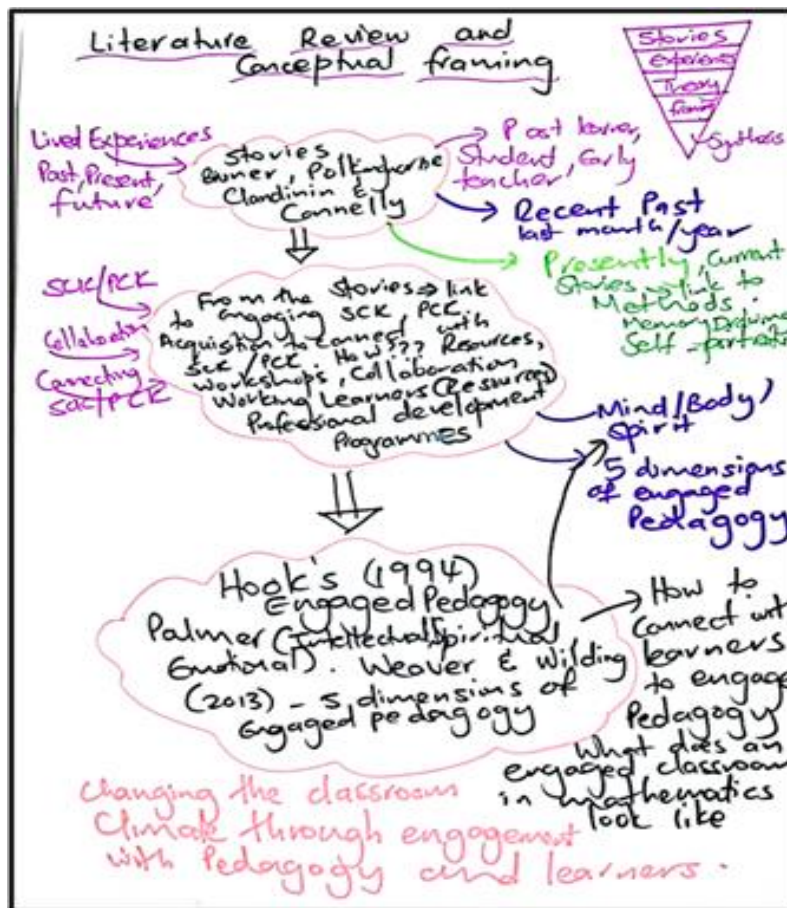 Literature Review and
Conceptual framing
Stories
experience
Theory
framing
Synthesis
Lived Experiences
Past, Present,
future
Stories
Bruner, Polkinghorne
Clandinin &
Connelly
Past learner,
Student, Early
teacher
Recent Past
last month/year
Presently, Current
Stories link to
Methods.
Memory Drawing
Self-portrait
SCK/PCK
Collaboration
Connecting
SCK/PCK
From the Stories ⇒ link
to engaging SCK, PCK
Acquistion to connect with
SCK/PCK. How??? Resources,
workshops, Collaboration
Working Learners (Resources)
Professional development
Programmes
Mind/Body/
Spirit
5 dimensions
of engaged
Pedagogy
Hook's (1994)
Engaged Pedagogy
Palmer (Intellectual, Spiritual
Emotional). Weaver & Wilding
(2013) - 5 dimensions of
Engaged pedagogy
How to
Connect with
learners
to engage
Pedagogy
What does an
engaged classroom
in mathematics
look like
Changing the classroom
Climate through engagement
with Pedagogy and learners.